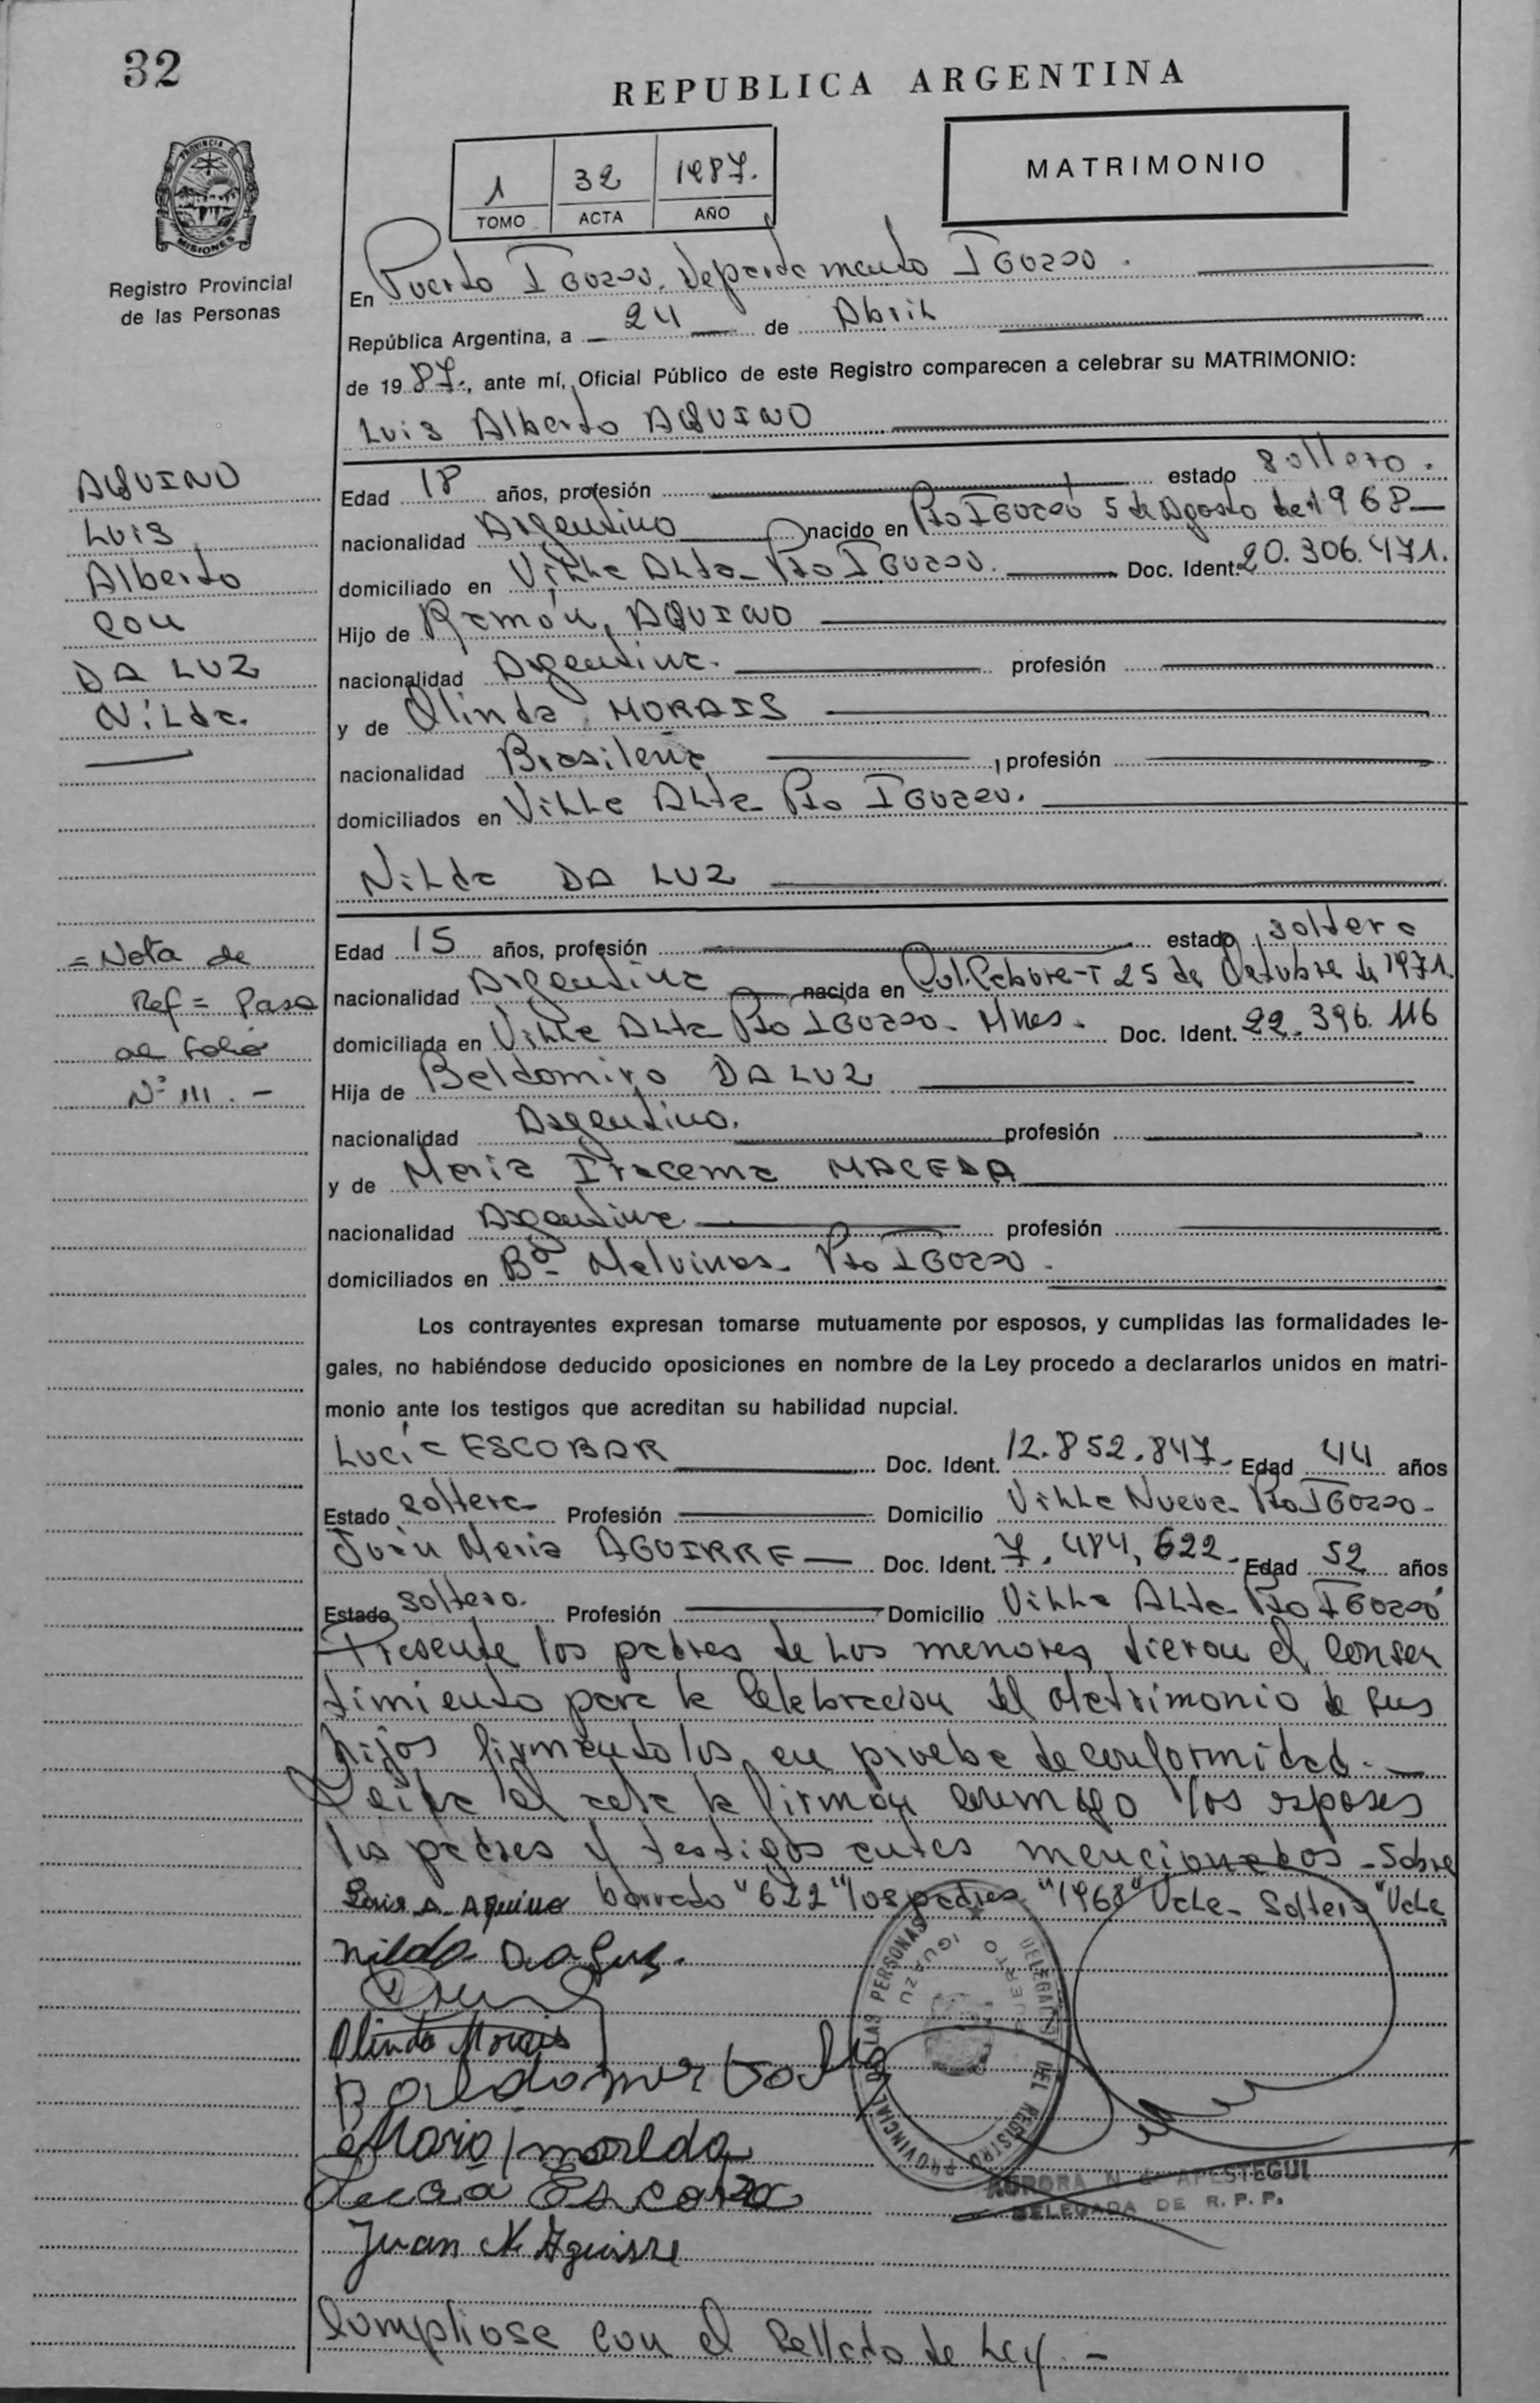 32
REPUBLICA ARGENTINA
1 32 1987.
TOMO ACTA AÑO
MATRIMONIO
PROVINCIA DE
MISIONES
Registro Provincial
de las Personas
En Puerto Iguazú, Departamento Iguazú.
República Argentina, a 24 de Abril
de 1987., ante mí, Oficial Público de este Registro comparecen a celebrar su MATRIMONIO:
Luis Alberto AQUINO
Edad 18 años, profesión estado soltero.
nacionalidad Argentino nacido en Pto Iguazú 5 de Agosto de 1968
domiciliado en Villa Alta - Pto Iguazú. Doc. Ident. 20.306.471.
Hijo de Ramón, AQUINO
nacionalidad Argentina. profesión
y de Olinda MORAIS
nacionalidad Brasileña, profesión
domiciliados en Villa Alta - Pto Iguazú.
Nilda DA LUZ
Edad 15 años, profesión estado soltera
nacionalidad Argentina nacida en 25 de Octubre de 1971.
domiciliada en Villa Alta Pto Iguazú - Mnes. Doc. Ident. 22.396.116
Hija de Beldomiro DA LUZ
nacionalidad Argentino. profesión
y de Maria Iracema MACEDA
nacionalidad Argentina. profesión
domiciliados en Bº Malvinas - Pto Iguazú.
Los contrayentes expresan tomarse mutuamente por esposos, y cumplidas las formalidades le-
gales, no habiéndose deducido oposiciones en nombre de la Ley procedo a declararlos unidos en matri-
monio ante los testigos que acreditan su habilidad nupcial.
Lucía ESCOBAR Doc. Ident. 12.852.847. Edad 44 años
Estado soltera Profesión Domicilio Villa Nueva - Pto Iguazú -
Juan Maria AGUIRRE Doc. Ident. 7.484.622. Edad 52 años
Estado soltero. Profesión Domicilio Villa Alta - Pto Iguazú
Presente los padres de los menores dieron el consen
timiento para la celebracion del Matrimonio de sus
hijos firmandolos en prueba de conformidad. -
Leida el acta la firman conmigo los esposos
los padres y testigos antes mencionados - Sobre
Luis A. Aquino borrado "622" los padres "1968" Vale - Soltera "Vale
Nilda Da Luz.
Olinda Morais
Lucia Escobar
Juan M Aguirre
Cumpliose con el Sellado de Ley. -
AQUINO
Luis
Alberto
con
DA LUZ
Nilda.
= Nota de
Ref = Pasa
al folio
Nº 111. -
DELEGACION DEL REGISTRO PROVINCIAL DE LAS PERSONAS
PUERTO IGUAZU
AURORA N G APESTEGUI
DELEGADA DE R. P. P.